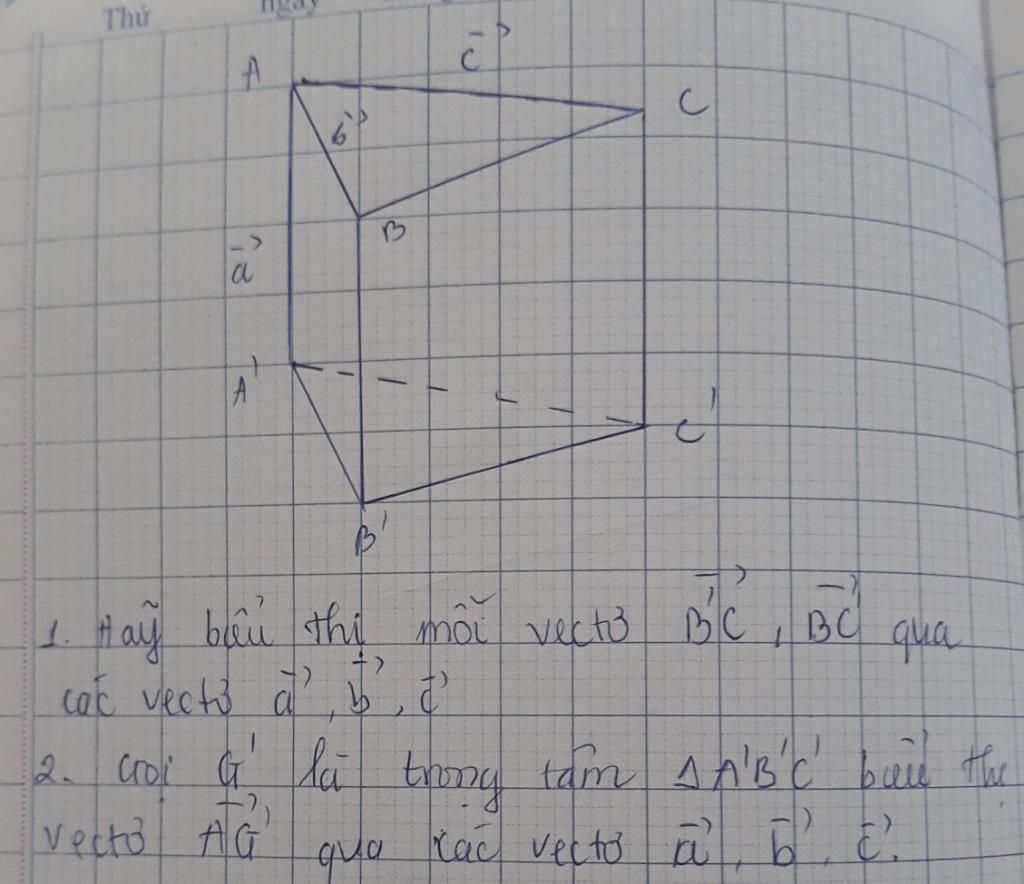 Thứ ngày
A
c⃗
C
b⃗
B
a⃗
A'
C'
B'
1. Hãy biểu thị mỗi vectơ B'C, BC' qua
các vectơ a⃗, b⃗, c⃗
2. Gọi G' là trọng tâm Δ A'B'C' biểu thị
vectơ AG' qua các vectơ a⃗, b⃗, c⃗.